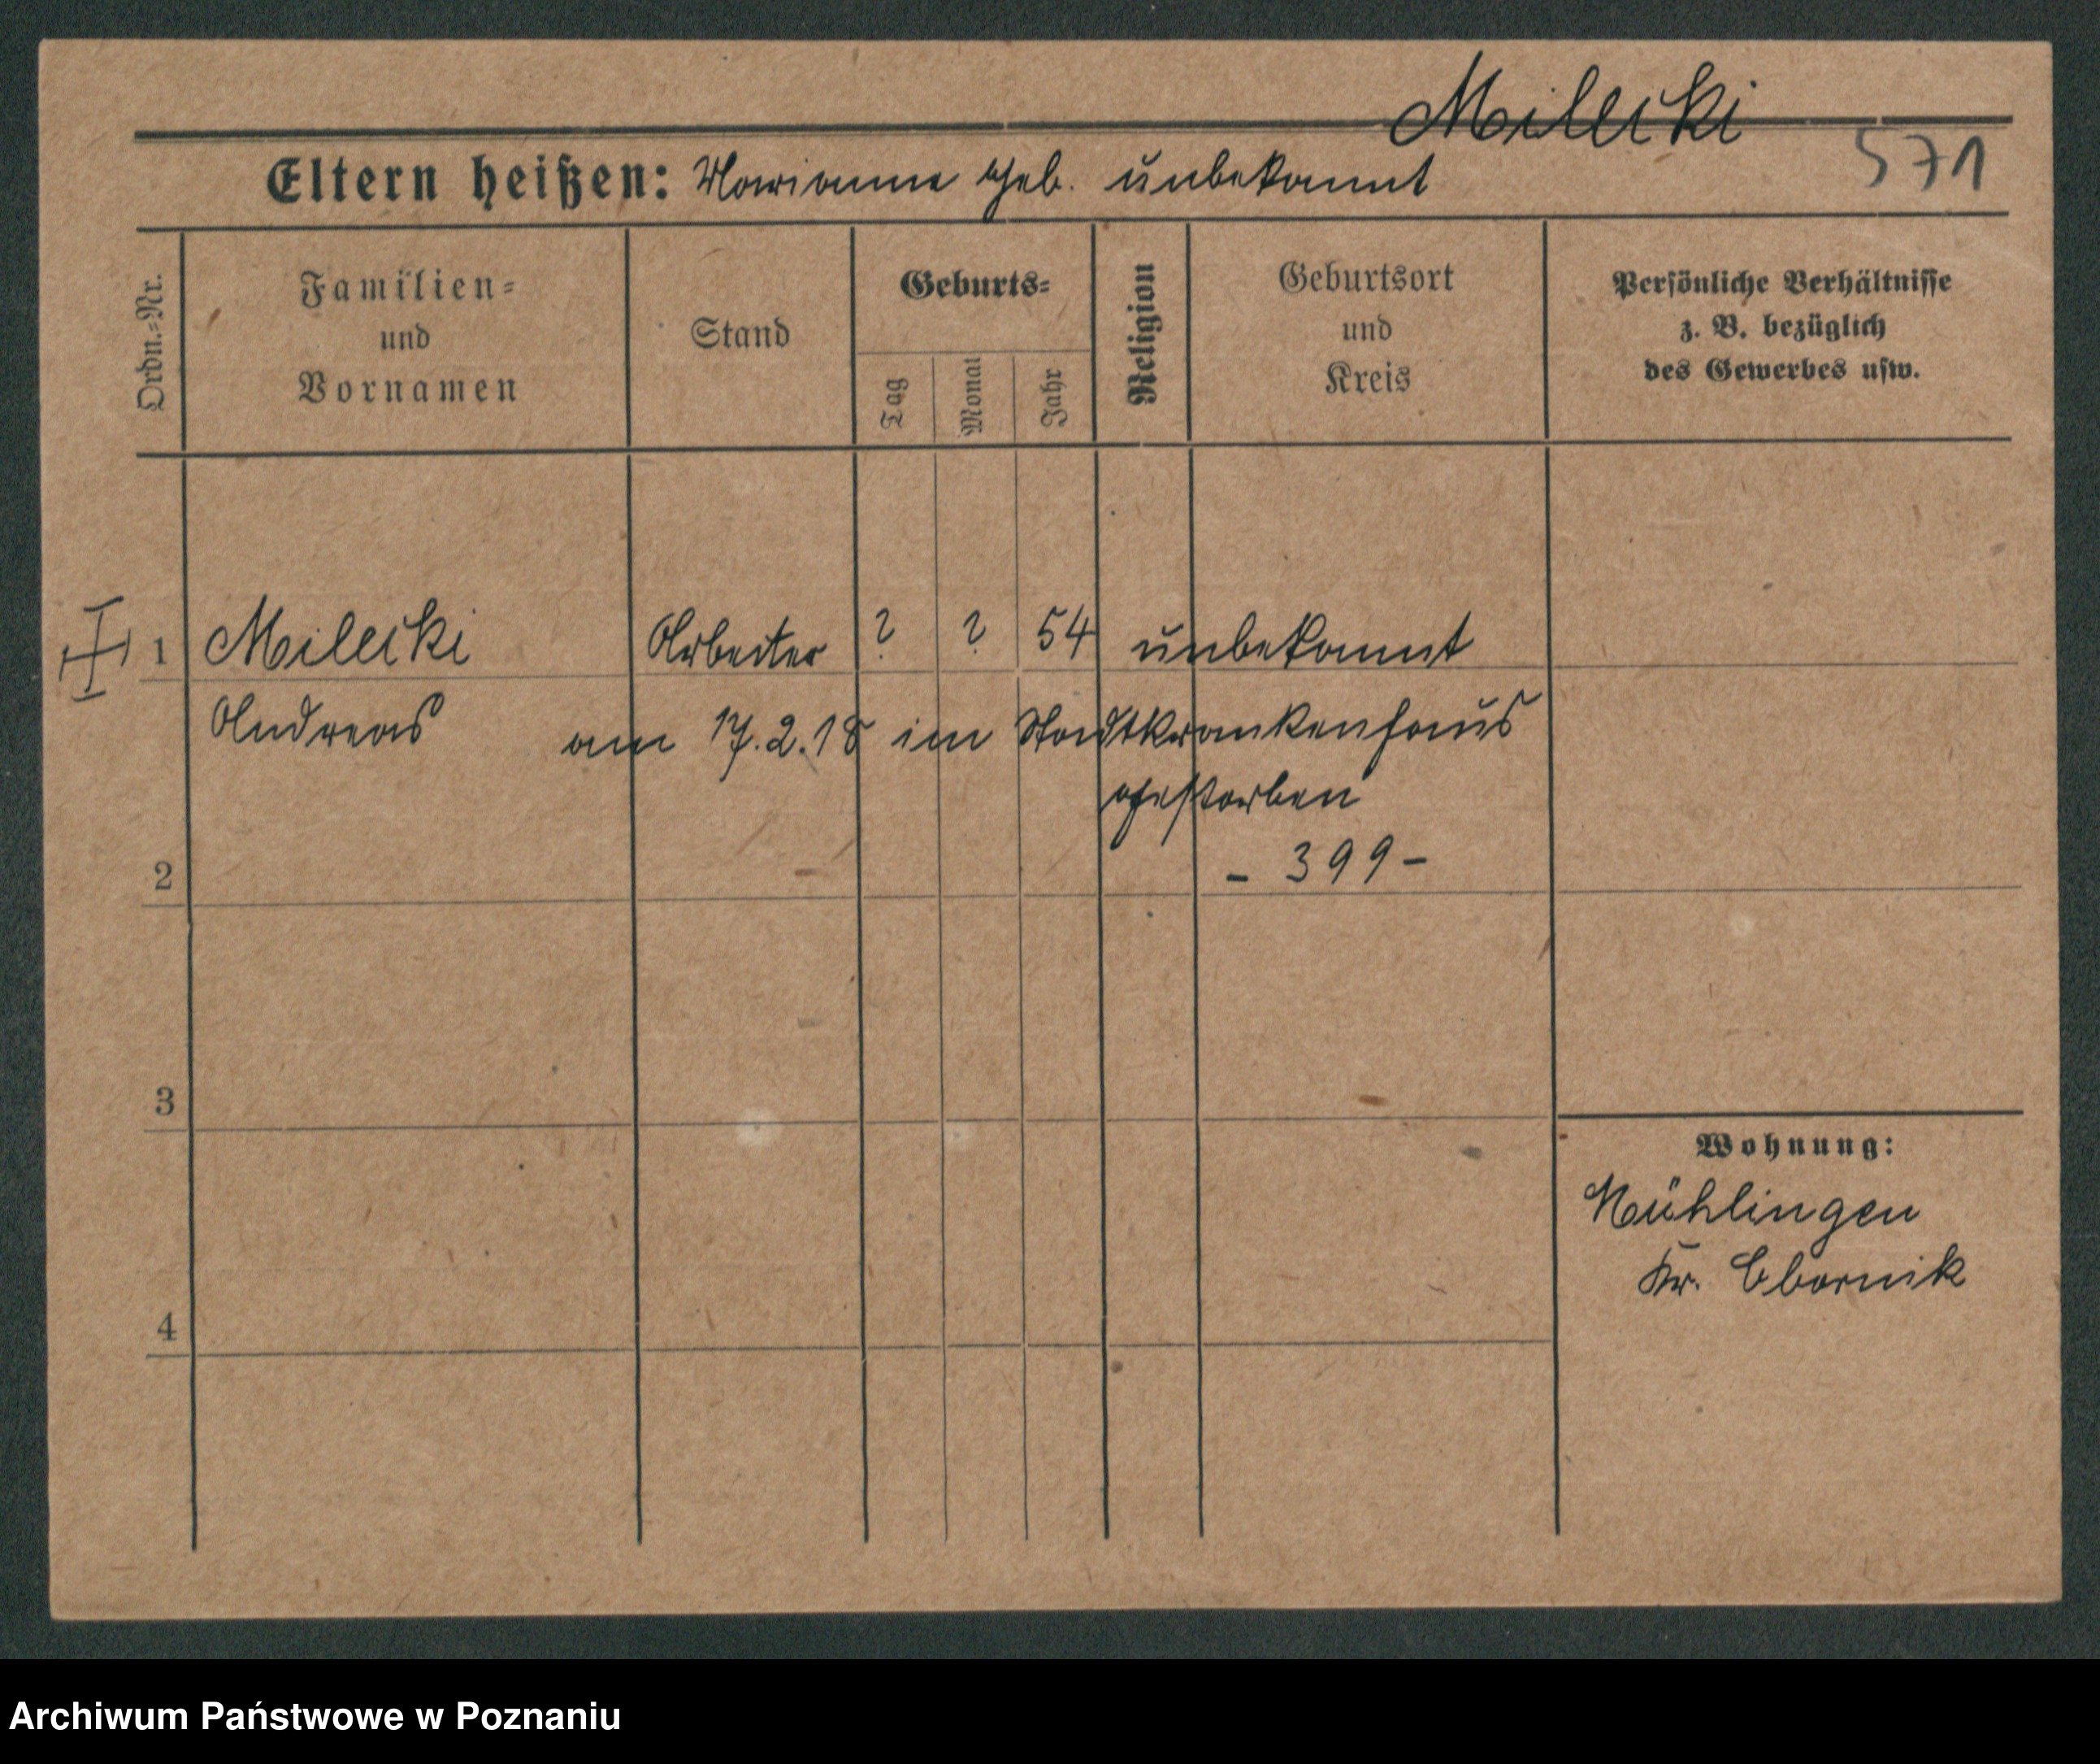 Milecki
571
Eltern heißen: Marianne geb. unbekannt
Ordn.=Nr.
Familien=
und
Vornamen
Stand
Geburts=
Tag
Monat
Jahr
Religion
Geburtsort
und
Kreis
Persönliche Verhältnisse
z. B. bezüglich
des Gewerbes usw.
1 Milecki Arbeiter ? ? 54 unbekannt
Andreas am 17.2.18 im Stadtkrankenhaus
gestorben
2 - 399 -
3
Wohnung:
Mühlingen
Kr. Obornik
4
Archiwum Państwowe w Poznaniu